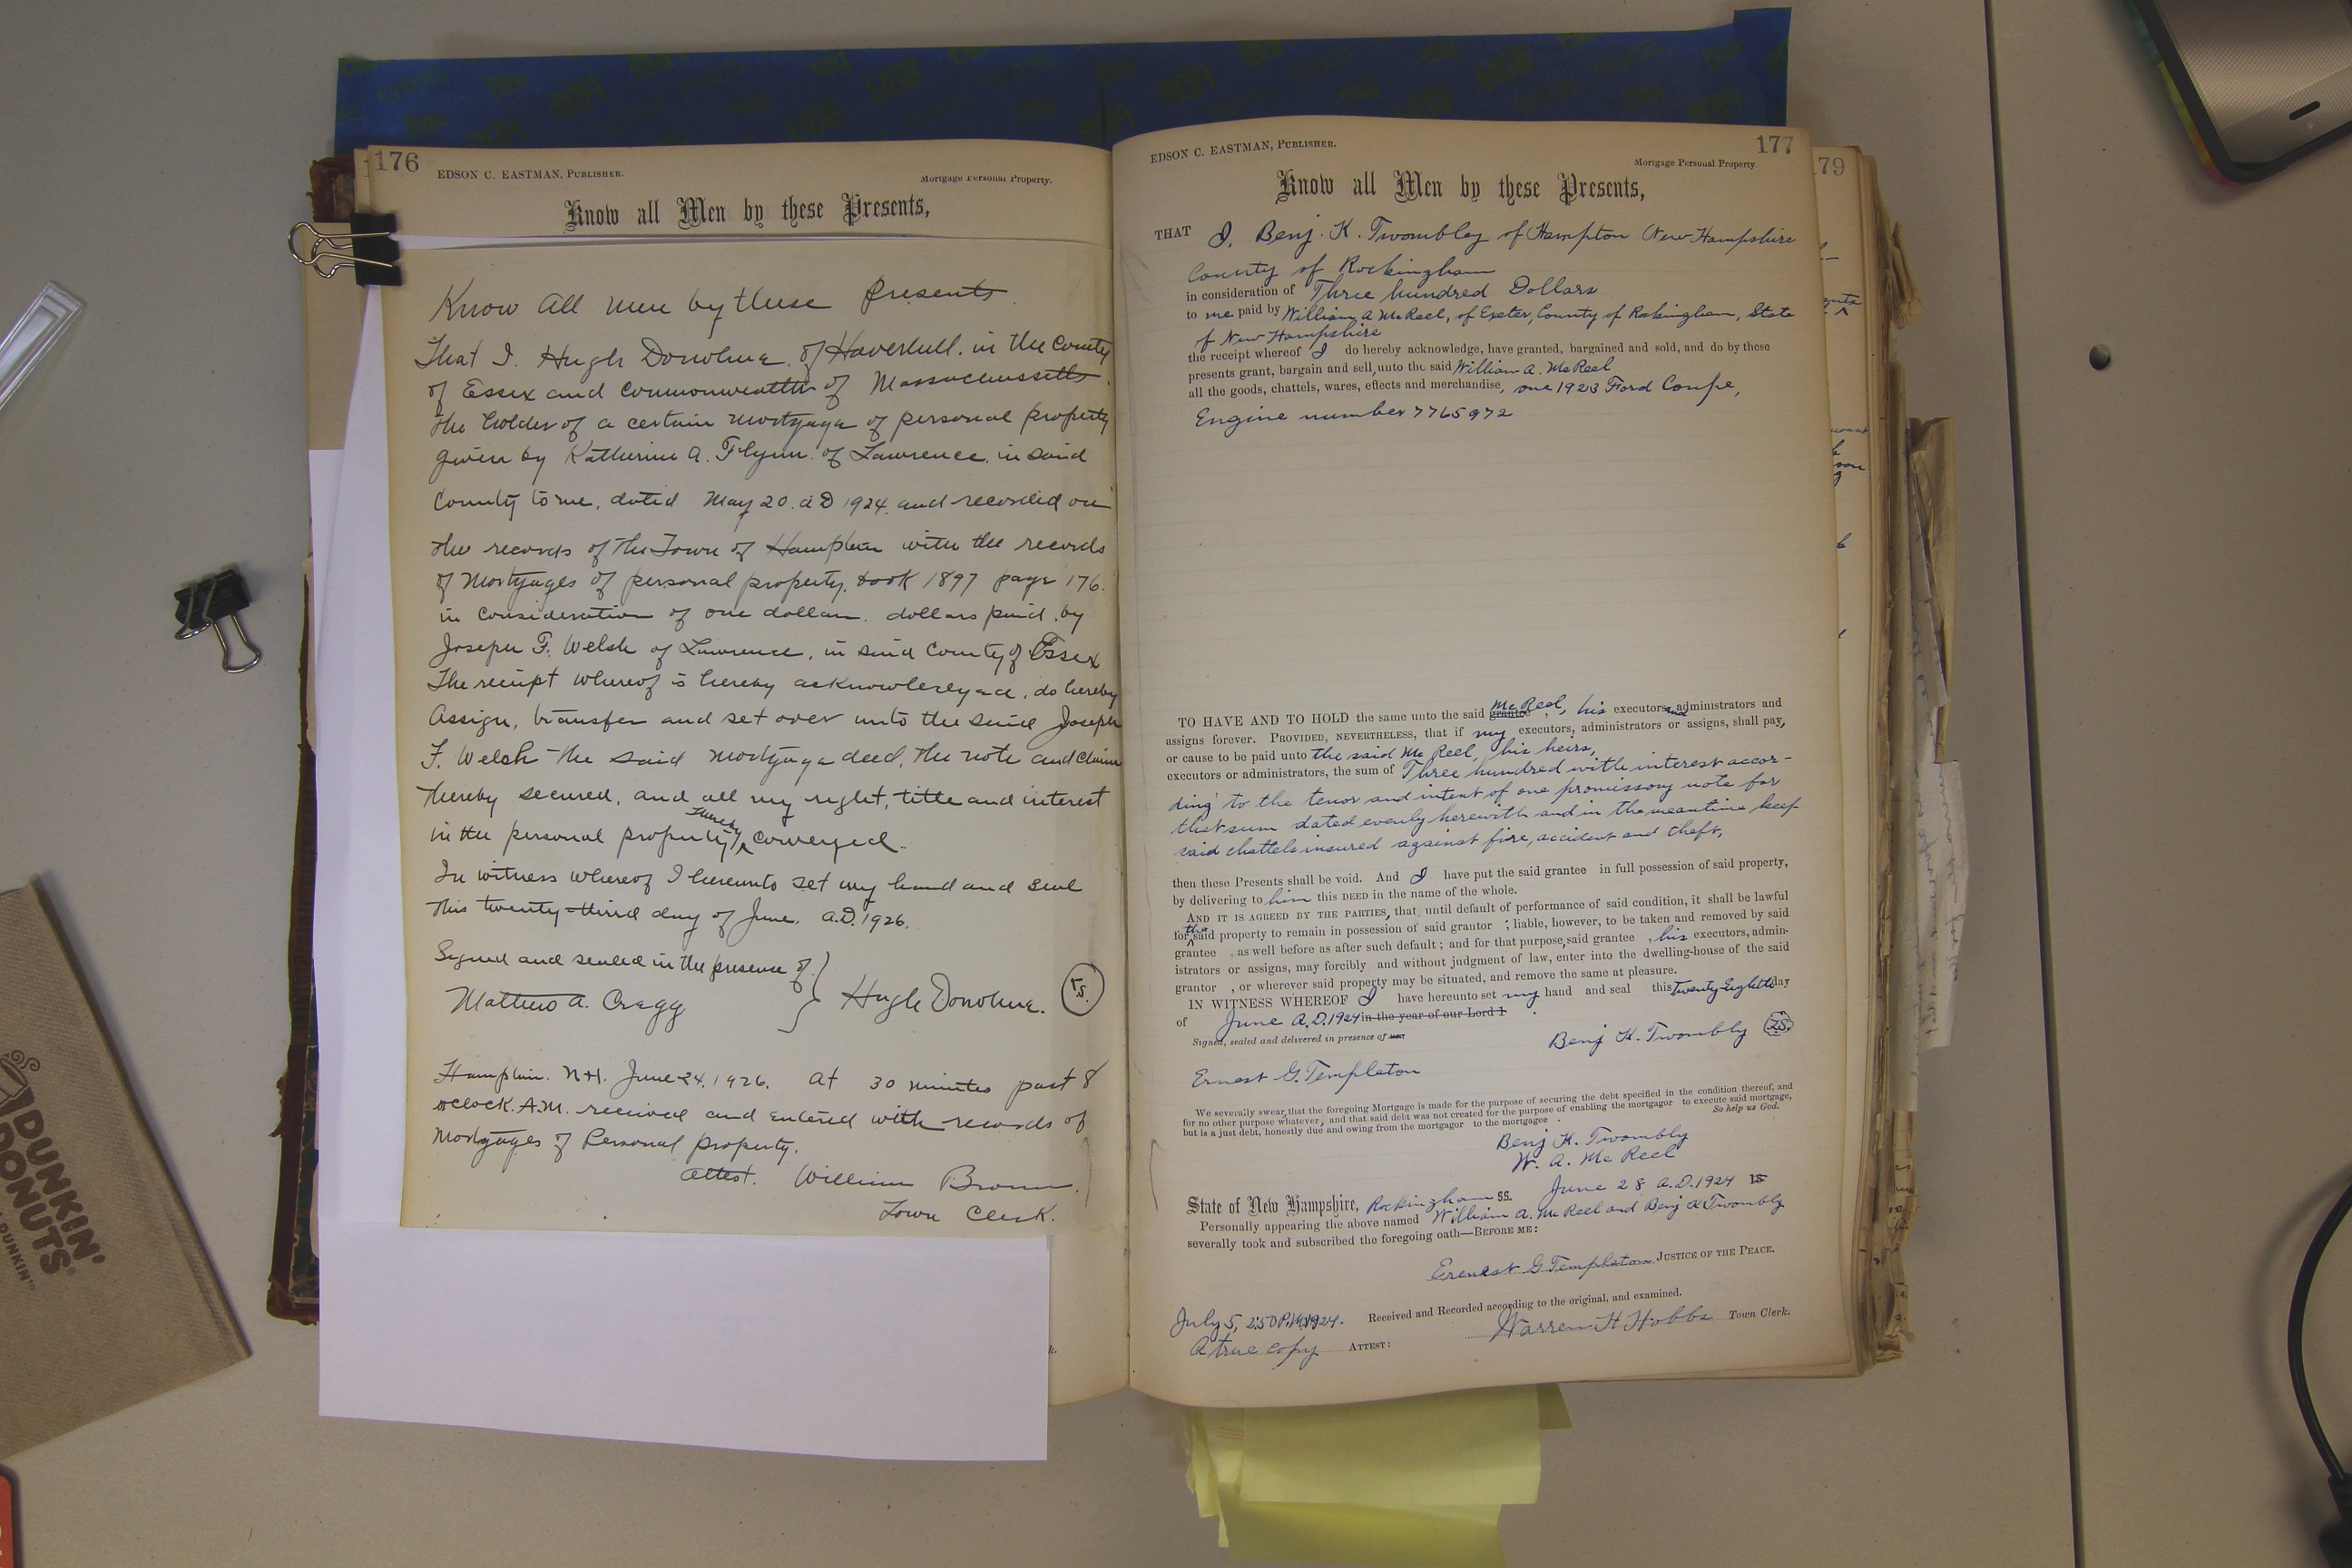 176
EDSON C. EASTMAN, PUBLISHER.
Mortgage Personal Property.
Know all Men by these Presents,
Know all men by these Presents.
That I, Hugh Donohue, of Haverhill, in the County
of Essex and Commonwealth of Massachussetts.
the holder of a certain mortgage of personal property
given by Katherine A. Flynn of Lawrence, in said
County to me, dated May 20. A D 1924. and recorded on
the records of the Town of Hampton with the records
of Mortgages of personal property, book 1897 page 176.
in consideration of one dollar. dollars paid by
Joseph F. Welsh of Lawrence, in said County of Essex
The receipt whereof is hereby acknowledged, do hereby
Assign, transfer and set over unto the said Joseph
F. Welsh the said mortgage deed, the note and claim
thereby secured, and all my right, title and interest
in the personal property thereby conveyed.
In witness whereof I hereunto set my hand and seal
this twenty-third day of June. A.D. 1926.
Signed and sealed in the presense of
Mathew A. Cragg } Hugh Donohue.
Hampton. N.H. June 24. 1926. At 30 minutes past 8
oclock. A.M. received and entered with records of
Mortgages of Personal property.
Attest. William Brown.
Town Clerk.
177
EDSON C. EASTMAN, PUBLISHER.
Mortgage Personal Property.
Know all Men by these Presents,
THAT I, Benj. K. Twombley of Hampton New Hampshire
County of Rockingham
in consideration of Three hundred Dollars
to me paid by William A McReel, of Exeter, County of Rockingham, State
of New Hampshire
the receipt whereof I do hereby acknowledge, have granted, bargained and sold, and do by these
presents grant, bargain and sell, unto the said William A. McReel
all the goods, chattels, wares, effects and merchandise, one 1923 Ford Coupe,
Engine number 7765972
TO HAVE AND TO HOLD the same unto the said grantee McReel, his executors and administrators and
assigns forever. PROVIDED, NEVERTHELESS, that if my executors, administrators or assigns, shall pay,
or cause to be paid unto the said McReel, his heirs,
executors or administrators, the sum of Three hundred with interest accor-
ding to the tenor and intent of one promissory note for
that sum dated evenly herewith and in the meantime keep
said chattels insured against fire, accident and theft,
then these Presents shall be void. And I have put the said grantee in full possession of said property,
by delivering to him this DEED in the name of the whole.
AND IT IS AGREED BY THE PARTIES, that, until default of performance of said condition, it shall be lawful
for the said property to remain in possession of said grantor ; liable, however, to be taken and removed by said
grantee , as well before as after such default ; and for that purpose, said grantee , his executors, admin-
istrators or assigns, may forcibly and without judgment of law, enter into the dwelling-house of the said
grantor , or wherever said property may be situated, and remove the same at pleasure.
IN WITNESS WHEREOF I have hereunto set my hand and seal this twenty Eighth day
of June A.D. 1924 in the year of our Lord 1
Signed, sealed and delivered in presence of
Benj K. Twombly L.S.
Ernest G. Templeton
We severally swear, that the foregoing Mortgage is made for the purpose of securing the debt specified in the condition thereof, and
for no other purpose whatever, and that said debt was not created for the purpose of enabling the mortgagor to execute said mortgage,
but is a just debt, honestly due and owing from the mortgagor to the mortgagee . So help us God.
Benj K. Twombly
W. A. McReel
State of New Hampshire, Rockingham ss. June 28 A.D. 1924 18
Personally appearing the above named William A. McReel and Benj K Twombly
severally took and subscribed the foregoing oath—BEFORE ME:
Erenest G Templeton JUSTICE OF THE PEACE.
July 5, 2:50 P.M. 1924. Received and Recorded according to the original, and examined.
A true copy ATTEST: Warren H Hobbs Town Clerk.
79
DUNKIN'
DONUTS